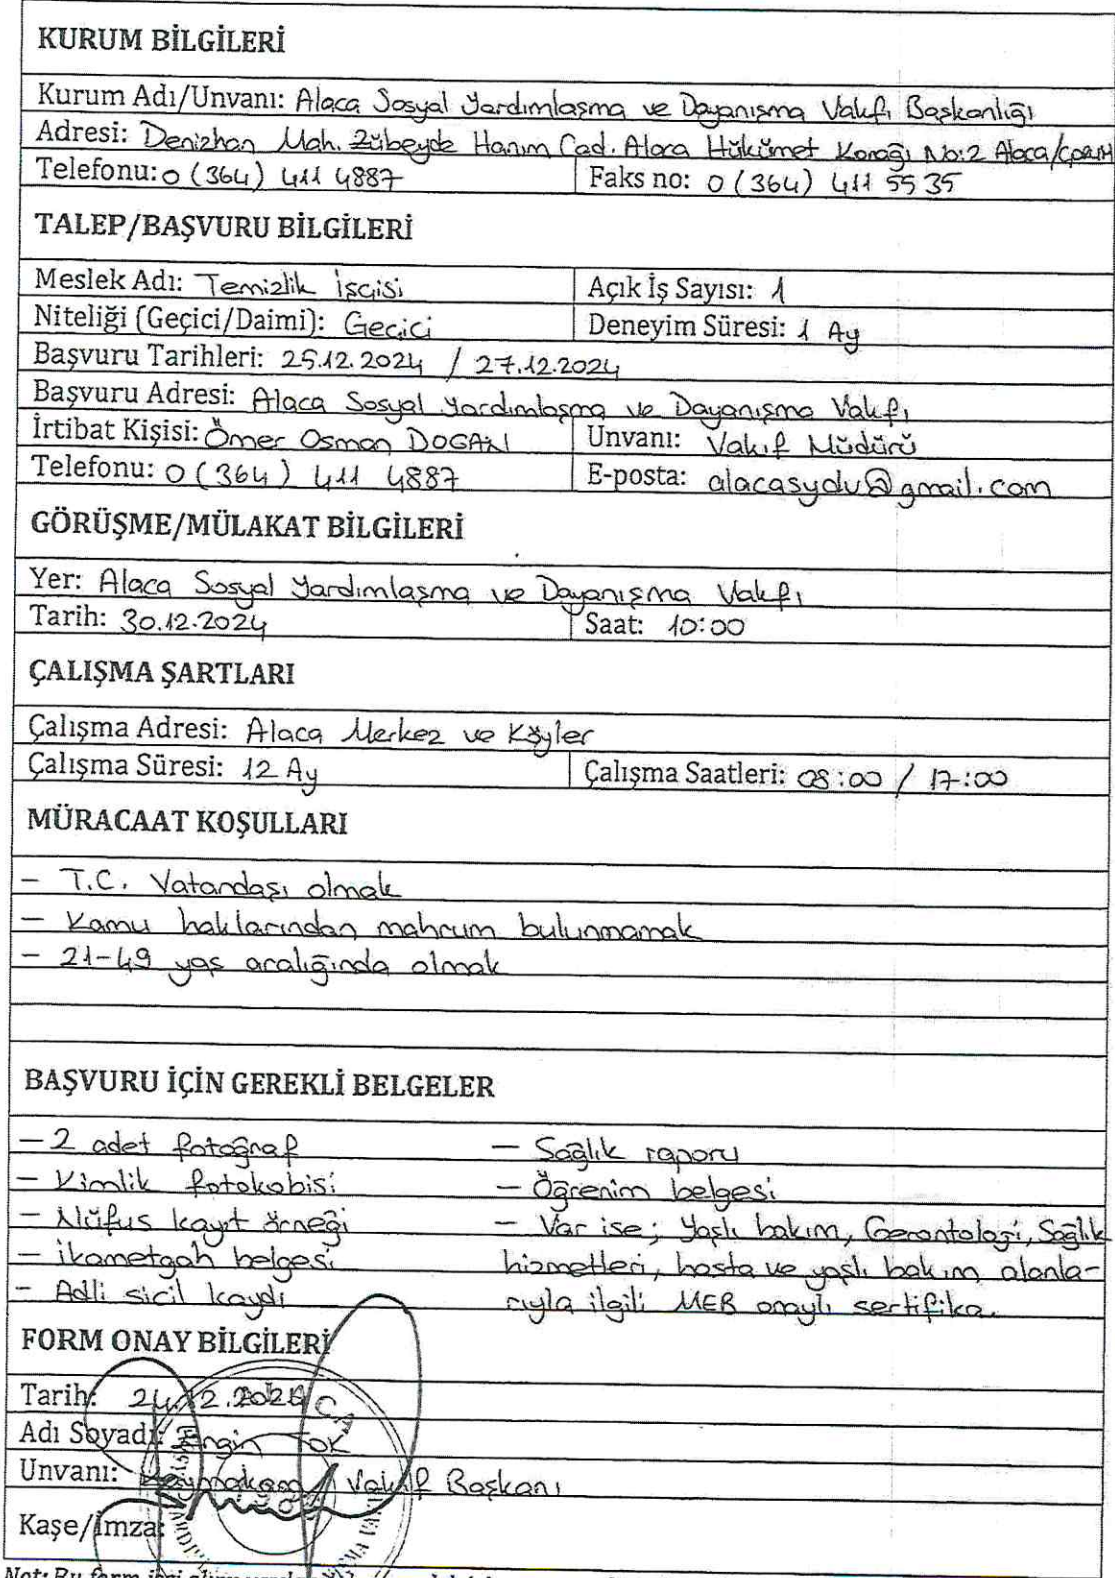 KURUM BİLGİLERİ
Kurum Adı/Unvanı: Alaca Sosyal Yardımlaşma ve Dayanışma Vakfı Başkanlığı
Adresi: Denizhan Mah. Zübeyde Hanım Cad. Alaca Hükümet Konağı No:2 Alaca/ÇORUM
Telefonu: 0 (364) 411 4887 Faks no: 0 (364) 411 55 35
TALEP/BAŞVURU BİLGİLERİ
Meslek Adı: Temizlik İşçisi Açık İş Sayısı: 1
Niteliği (Geçici/Daimi): Geçici Deneyim Süresi: 1 Ay
Başvuru Tarihleri: 25.12.2024 / 27.12.2024
Başvuru Adresi: Alaca Sosyal Yardımlaşma ve Dayanışma Vakfı
İrtibat Kişisi: Ömer Osman DOĞAN Unvanı: Vakıf Müdürü
Telefonu: 0 (364) 411 4887 E-posta: alacasydv@gmail.com
GÖRÜŞME/MÜLAKAT BİLGİLERİ
Yer: Alaca Sosyal Yardımlaşma ve Dayanışma Vakfı
Tarih: 30.12.2024 Saat: 10:00
ÇALIŞMA ŞARTLARI
Çalışma Adresi: Alaca Merkez ve Köyler
Çalışma Süresi: 12 Ay Çalışma Saatleri: 08:00 / 17:00
MÜRACAAT KOŞULLARI
- T.C. Vatandaşı olmak
- Kamu haklarından mahrum bulunmamak
- 21-49 yaş aralığında olmak
BAŞVURU İÇİN GEREKLİ BELGELER
- 2 adet fotoğraf - Sağlık raporu
- Kimlik fotokobisi - Öğrenim belgesi
- Nüfus kayıt örneği - Var ise; Yaşlı bakım, Gerontoloji, Sağlık
- İkametgah belgesi hizmetleri, hasta ve yaşlı bakım alanla-
- Adli sicil kaydı rıyla ilgili MEB onaylı sertifika.
FORM ONAY BİLGİLERİ
Tarih: 24.12.2024
Adı Soyadı: Engin TOK
Unvanı: Kaymakam / Vakıf Başkanı
Kaşe/İmza:
Not: Bu form işçi